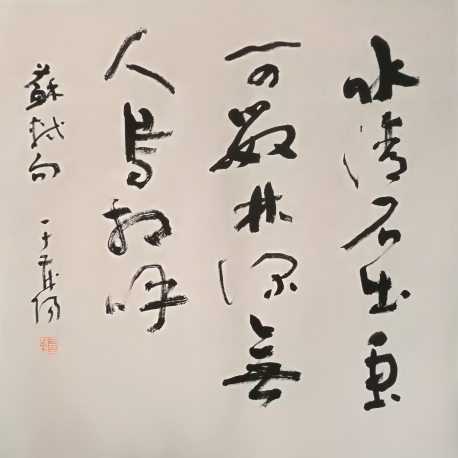 水清石出魚
可數林深無
人鳥相呼
蘇軾句